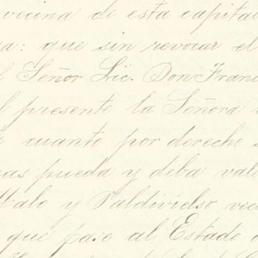 vecina de esta capital
a: que sin revocar el
l Señor Lic. Don Fran
l presente la Señora
e cuanto por derecho s
as pueda y deba vale
Malo y Valdivielso vec
que pasó al Estado d